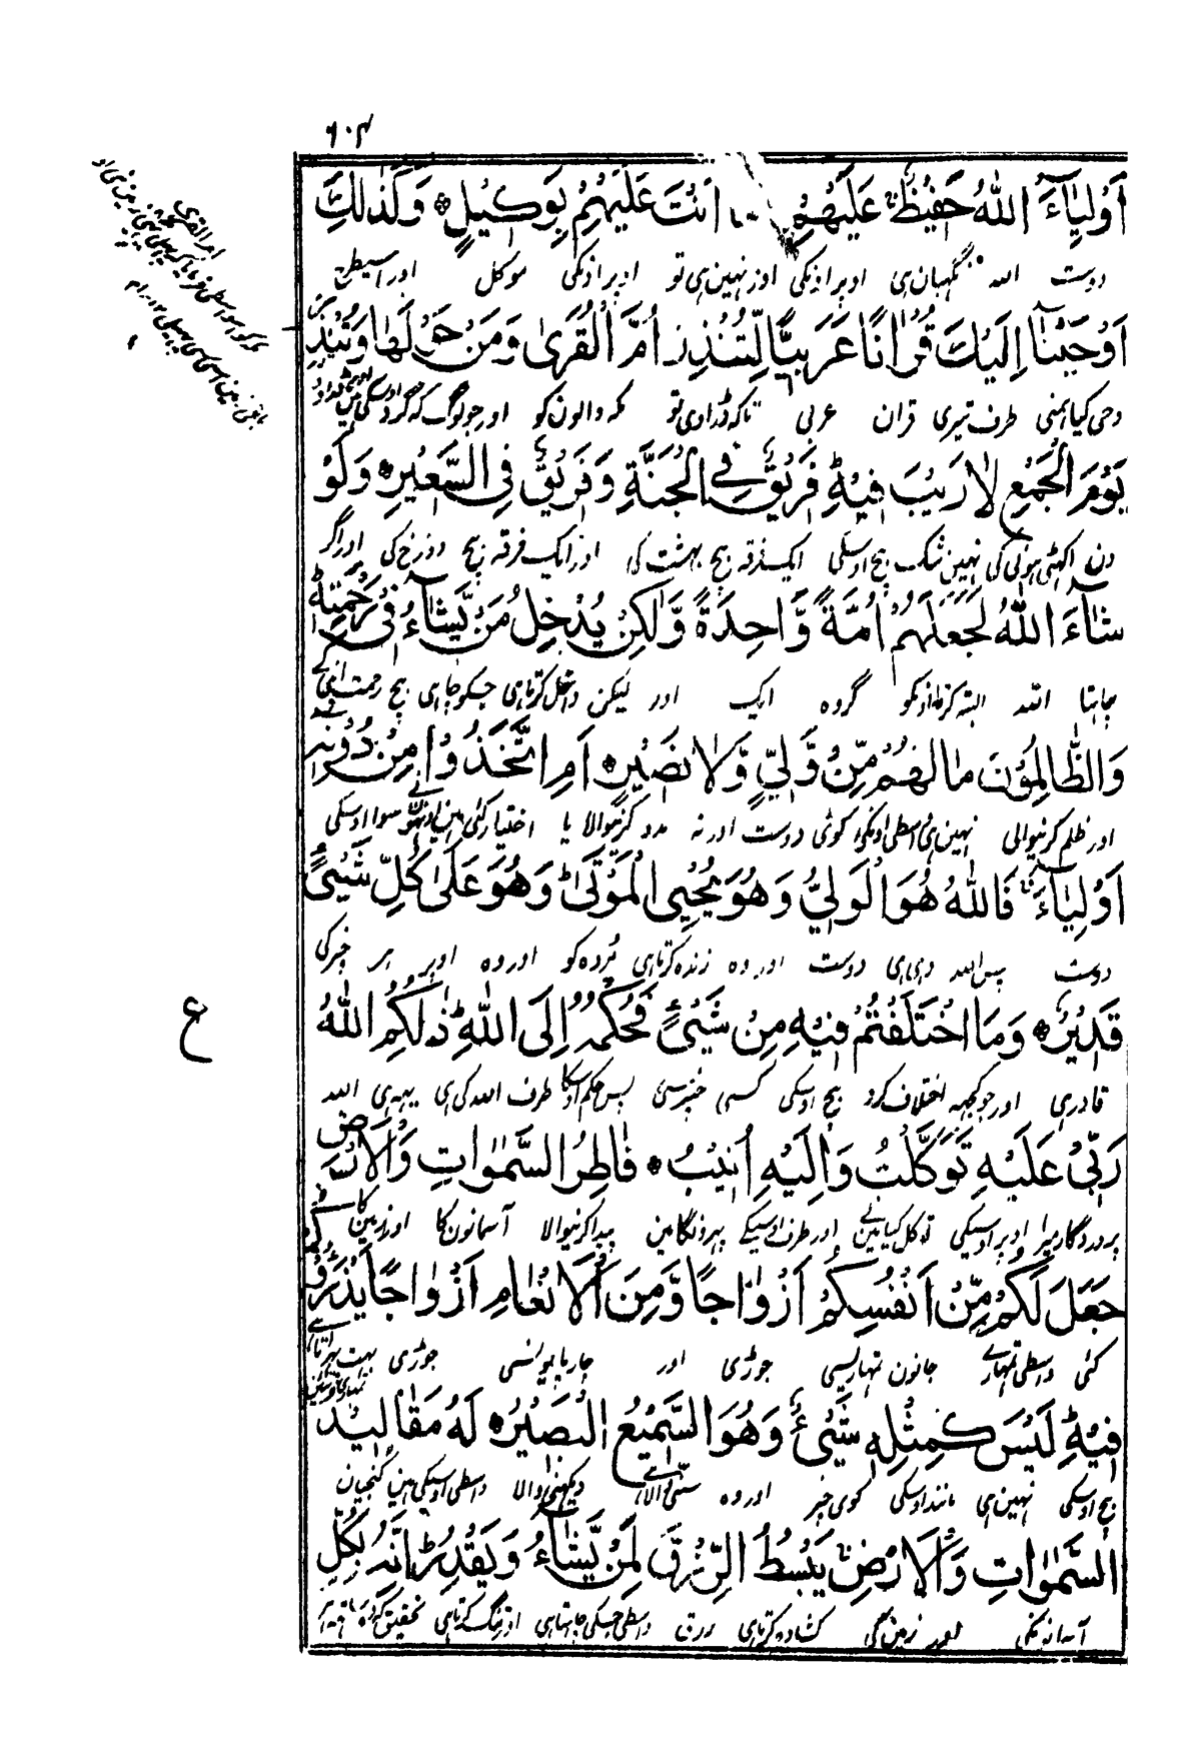 ۶۰۴
اَوْلِيَآءَ اللّٰهُ حَفِيْظٌ عَلَيْهِمْ اَنْتَ عَلَيْهِمْ بِوَكِيْلٍ وَكَذٰلِكَ
دوست الله نگہبان ہی اوپر اونکی اور نہین ہی تو اوپر اونکی موکل اور اسیطرح
اَوْحَيْنَآ اِلَيْكَ قُرْاٰنًا عَرَبِيًّا لِّتُنْذِرَ اُمَّ الْقُرٰى وَمَنْ حَوْلَهَا وَتُنْذِرَ
وحی کیا ہمنی طرف تیری قران عربی تاکہ ڈراوی تو مکہ والون کو اور جو لوگ کہ گرد اوسکی ہین
يَوْمَ الْجَمْعِ لَا رَيْبَ فِيْهِ فَرِيْقٌ فِى الْجَنَّةِ وَفَرِيْقٌ فِى السَّعِيْرِ وَلَوْ
دن اکہٹی ہونی کی نہین شک بیچ اوسکی ایک فرقہ بیچ بہشت کی اور ایک فرقہ بیچ دوزخ کی اور اگر
شَآءَ اللّٰهُ لَجَعَلَهُمْ اُمَّةً وَّاحِدَةً وَّلٰكِنْ يُّدْخِلُ مَنْ يَّشَآءُ فِىْ رَحْمَتِهٖ
چاہتا الله البتہ کرتا اونکو گروہ ایک اور لیکن داخل کرتا ہی جسکو چاہی بیچ رحمت اپنی
وَالظّٰلِمُوْنَ مَا لَهُمْ مِّنْ وَّلِيٍّ وَّلَا نَصِيْرٍ اَمِ اتَّخَذُوْا مِنْ دُوْنِهٖٓ
اور ظلم کرنیوالی نہین ہی واسطی اونکی کوئی دوست اور نہ مدد کرنیوالا یا اختیار کئی ہین اونہون نے سوا اوسکی
اَوْلِيَآءَ فَاللّٰهُ هُوَ الْوَلِيُّ وَهُوَ يُحْيِى الْمَوْتٰى وَهُوَ عَلٰى كُلِّ شَيْءٍ
دوست پس الله وہی ہی دوست اور وہ زندہ کرتا ہی مُردہ کو اور وہ اوپر ہر چیز کی
قَدِيْرٌ وَمَا اخْتَلَفْتُمْ فِيْهِ مِنْ شَيْءٍ فَحُكْمُهٗٓ اِلَى اللّٰهِ ذٰلِكُمُ اللّٰهُ
ع
قادر ہی اور جو کچہہ اختلاف کرو بیچ اوسکی کسی چیز سی پس حکم اوسکا طرف الله کی ہی یہہ ہی الله
رَبِّيْ عَلَيْهِ تَوَكَّلْتُ وَاِلَيْهِ اُنِيْبُ فَاطِرُ السَّمٰوٰتِ وَالْاَرْضِ
پروردگار میرا اوپر اوسیکی توکل کیا مین نے اور طرف اوسیکے پہرونگا مین پیدا کرنیوالا آسمانون کا اور زمین کا
جَعَلَ لَكُمْ مِّنْ اَنْفُسِكُمْ اَزْوَاجًا وَّمِنَ الْاَنْعَامِ اَزْوَاجًا يَذْرَؤُكُمْ
کئی واسطی تمہارے جانون تمہاریسی جوڑی اور چارپایونسی جوڑی
فِيْهِ لَيْسَ كَمِثْلِهٖ شَيْءٌ وَهُوَ السَّمِيْعُ الْبَصِيْرُ لَهٗ مَقَالِيْدُ
بیچ اوسکی نہین ہی مانند اوسکی کوی چیز اور وہ سننی والا دیکہنی والا واسطی اوسکی ہین کنجیان
السَّمٰوٰتِ وَالْاَرْضِ يَبْسُطُ الرِّزْقَ لِمَنْ يَّشَآءُ وَيَقْدِرُ اِنَّهٗ بِكُلِّ
آسمانونکی اور زمین کی کشادہ کرتا ہی رزق واسطی جسکی چاہتا ہی اور تنگ کرتا ہی تحقیق وہ